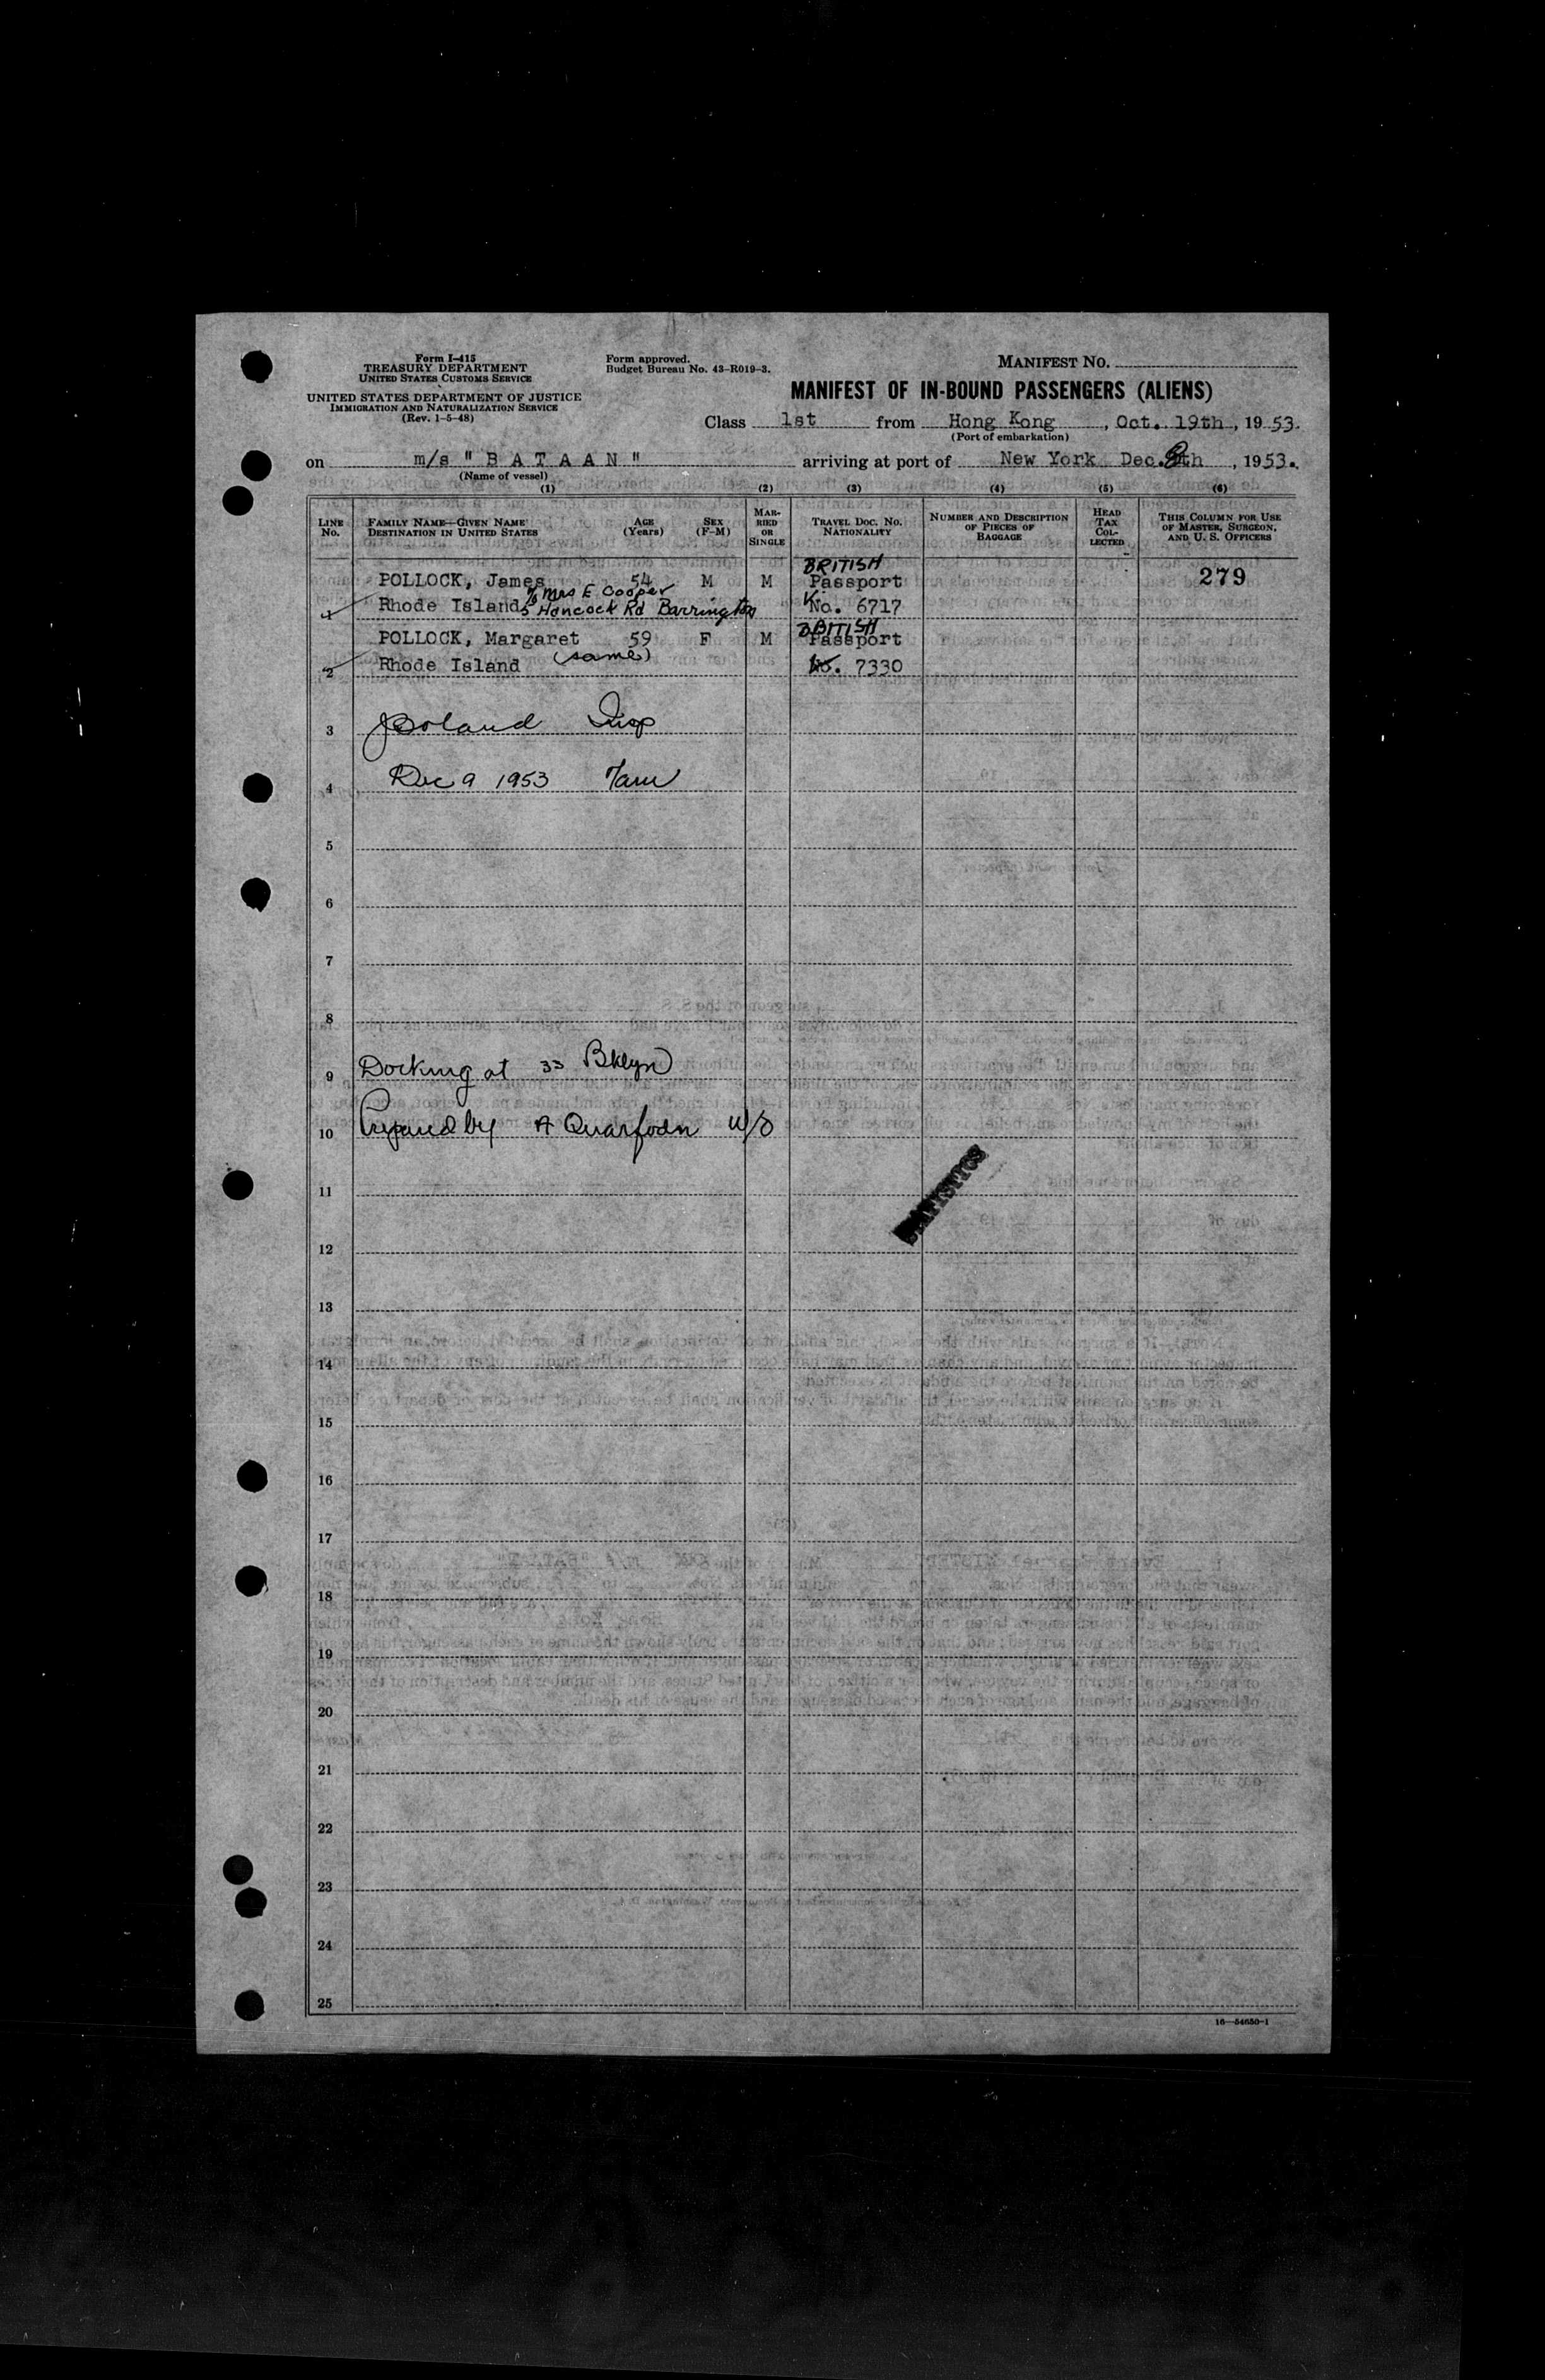 Form I-415
TREASURY DEPARTMENT
UNITED STATES CUSTOMS SERVICE
UNITED STATES DEPARTMENT OF JUSTICE
IMMIGRATION AND NATURALIZATION SERVICE
(Rev. 1-5-48)
Form approved.
Budget Bureau No. 43-R019-3.
MANIFEST NO.
MANIFEST OF IN-BOUND PASSENGERS (ALIENS)
Class 1st from Hong Kong, Oct. 19th, 1953.
(Port of embarkation)
on m/s "BATAAN" arriving at port of New York Dec. 9th, 1953.
(Name of vessel)
(1) (2) (3) (4) (5) (6)
LINE No. FAMILY NAME—GIVEN NAME DESTINATION IN UNITED STATES AGE (Years) SEX (F-M) MARRIED OR SINGLE TRAVEL DOC. NO. NATIONALITY NUMBER AND DESCRIPTION OF PIECES OF BAGGAGE HEAD TAX COLLECTED THIS COLUMN FOR USE OF MASTER, SURGEON, AND U. S. OFFICERS
BRITISH
POLLOCK, James 54 M M Passport 279
c/o Mrs E Cooper
1 Rhode Island 5 Hancock Rd Barrington No. 6717
BRITISH
POLLOCK, Margaret 59 F M Passport
2 Rhode Island (same) No. 7330
3 JBoland Insp
4 Dec 9 1953 7am
5
6
7
8
9 Docking at 33 Bklyn
10 Prepared by A Quarfodn
STATISTICS
11
12
13
14
15
16
17
18
19
20
21
22
23
24
25
16—54650-1